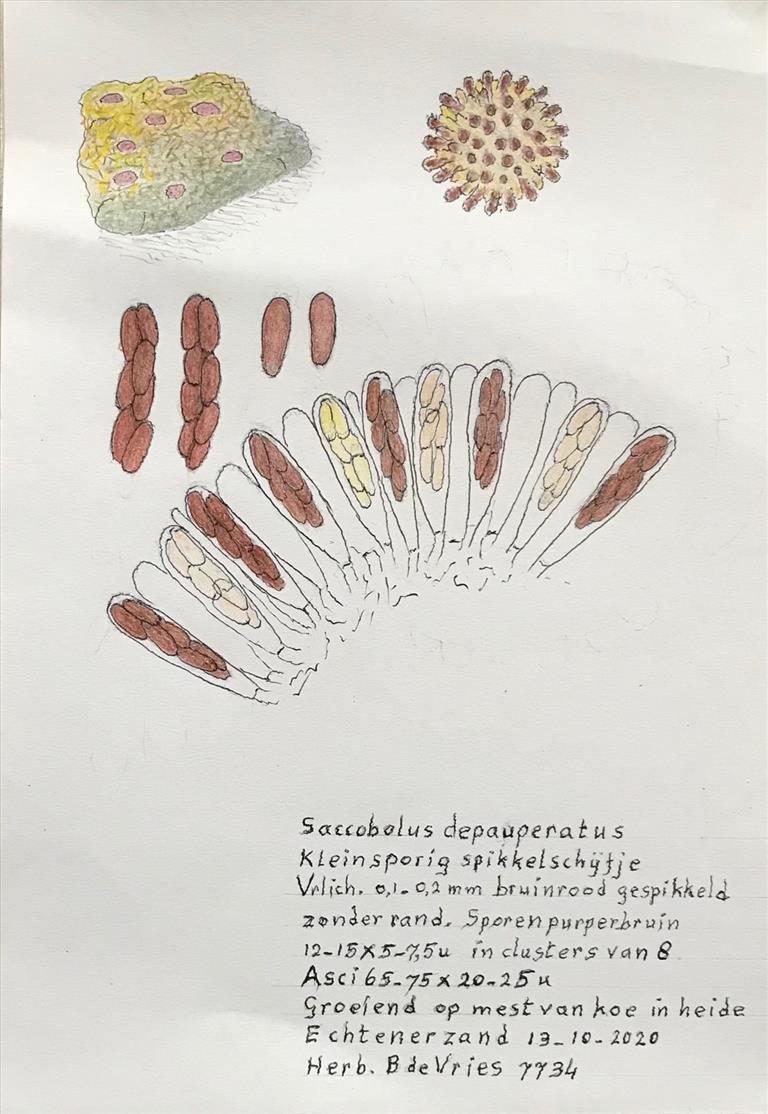 Saccobolus depauperatus
Kleinsporig spikkelschijfje
Vrlich. 0,1-0,2 mm bruinrood gespikkeld
zonder rand. Sporen purperbruin
12-15x5-7,5u in clusters van 8
Asci 65-75 x 20-25u
Groeiend op mest van koe in heide
Echtenerzand 13-10-2020
Herb. B de Vries 7734